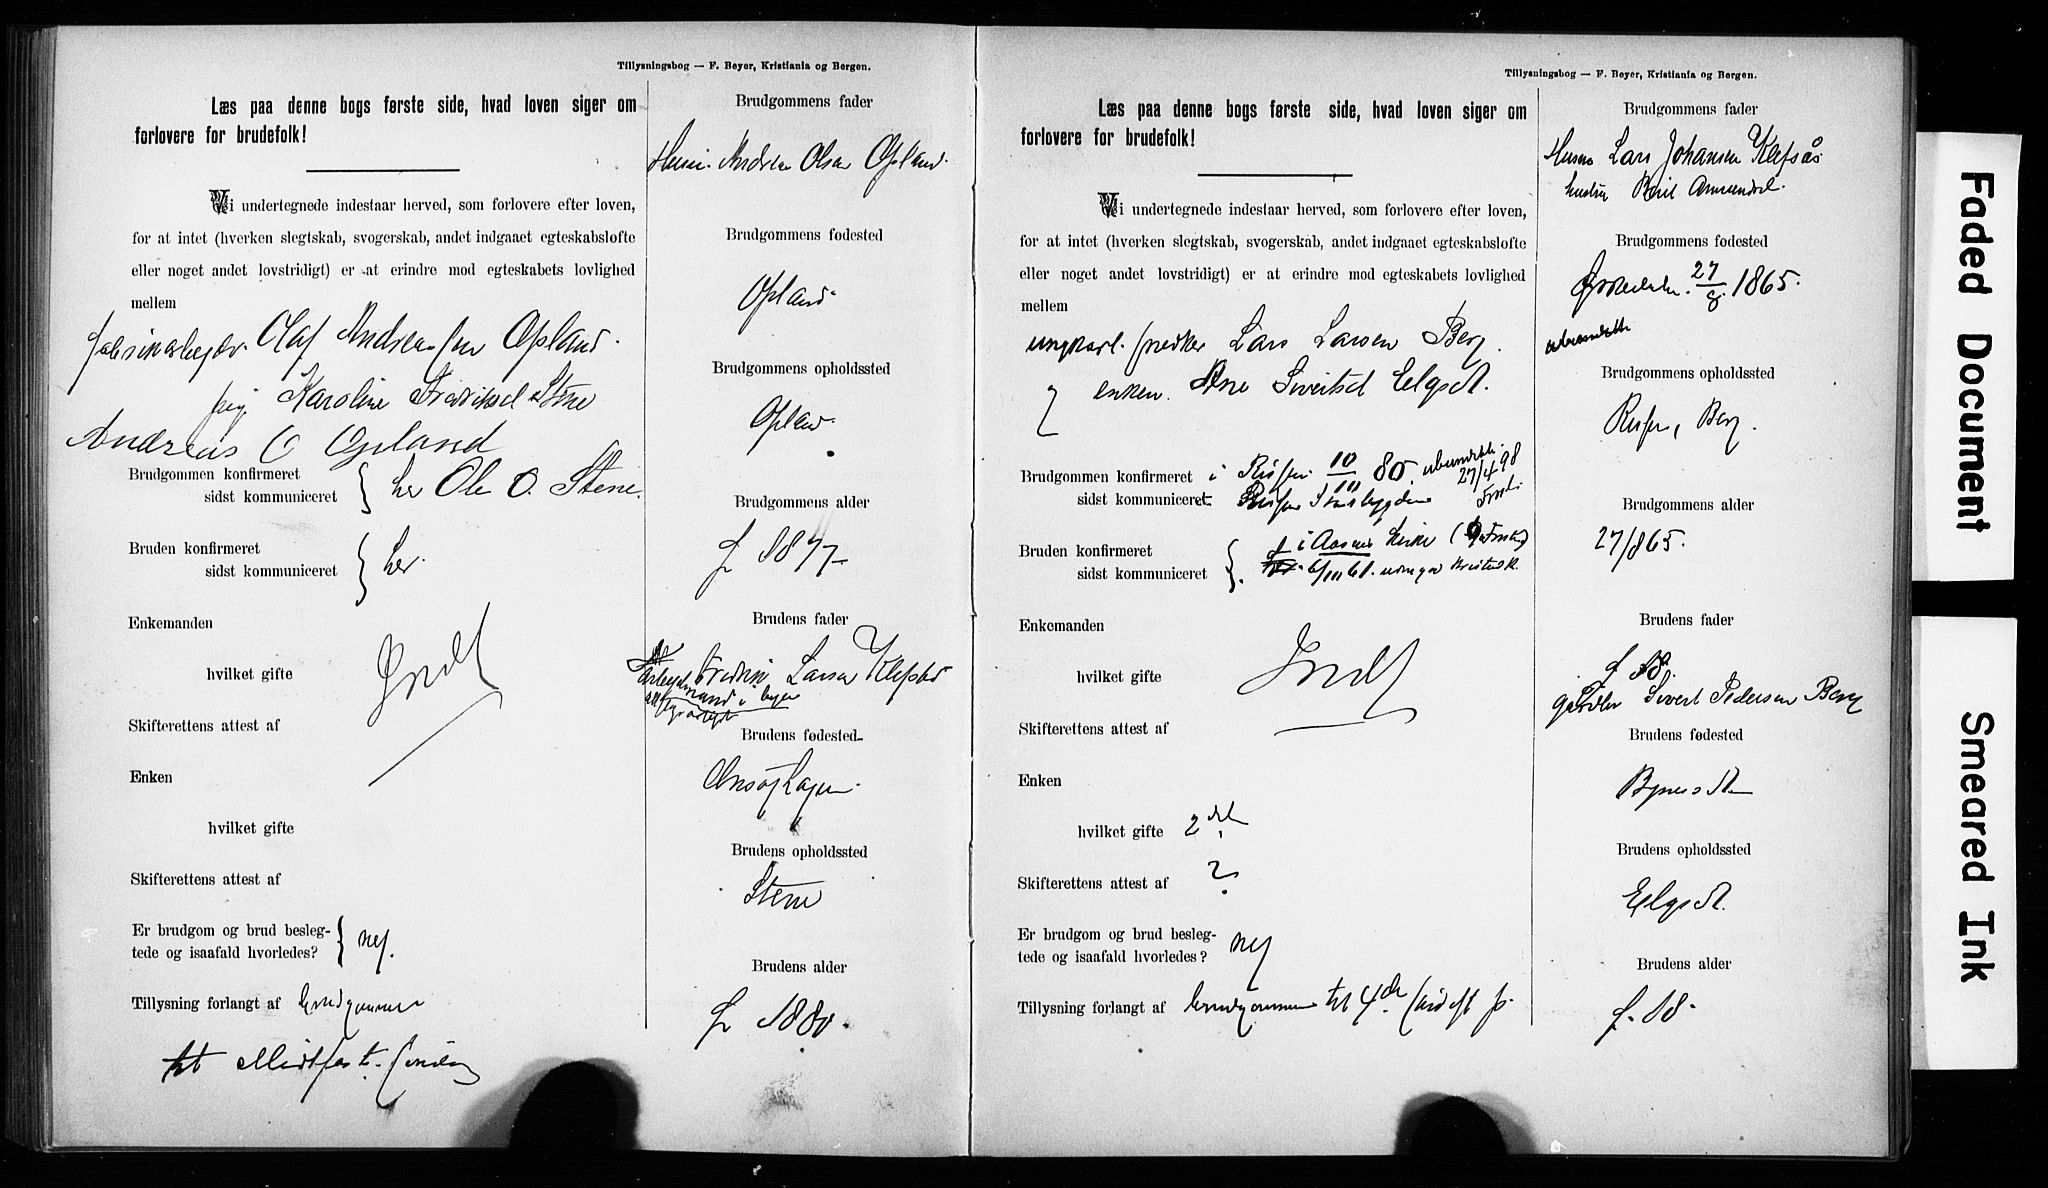 Tillysningsbog — F. Beyer, Kristiania og Bergen.
Læs paa denne bogs første side, hvad loven siger om
forlovere for brudefolk!
Vi undertegnede indestaar herved, som forlovere efter loven,
for at intet (hverken slegtskab, svogerskab, andet indgaaet egteskabsløfte
eller noget andet lovstridigt) er at erindre mod egteskabets lovlighed
mellem
Olaf Opland.
pige Karoline Stene
Andreas O Opland
Brudgommen konfirmeret
sidst kommuniceret } her Ole O. Stene.
Bruden konfirmeret
sidst kommuniceret } her.
Enkemanden
hvilket gifte
Skifterettens attest af
Enken
hvilket gifte
Skifterettens attest af
Er brudgom og brud besleg-
tede og isaafald hvorledes? } nej.
Tillysning forlangt af brudgommen
Brudgommens fader
Andreas Olsen Opland.
Brudgommens fødested
Opland
Brudgommens opholdssted
Opland.
Brudgommens alder
f 1877
Brudens fader
Fredrik Larsen Klefsås
Arbeidsmand i byen
Brudens fødested
Brudens opholdssted
Stene
Brudens alder
f 1880.
Tillysningsbog — F. Beyer, Kristiania og Bergen.
Læs paa denne bogs første side, hvad loven siger om
forlovere for brudefolk!
Vi undertegnede indestaar herved, som forlovere efter loven,
for at intet (hverken slegtskab, svogerskab, andet indgaaet egteskabsløfte
eller noget andet lovstridigt) er at erindre mod egteskabets lovlighed
mellem
ungkarl. snedker Lars Larsen Berg.
enken Ane Sivertsd Elgset.
Brudgommen konfirmeret i Rissen 10 80. 27/4 98
sidst kommuniceret Rissen
Bruden konfirmeret i Aasens kirke
sidst kommuniceret {
Enkemanden
hvilket gifte
Skifterettens attest af
Enken
hvilket gifte 2det
Skifterettens attest af ?
Er brudgom og brud besleg-
tede og isaafald hvorledes? nej
Tillysning forlangt af brudgommen til 4de
Brudgommens fader
Lars Johansen Klefsås
hustru Berit
Brudgommens fødested
27/8 1865.
Brudgommens opholdssted
Rissen, Berg.
Brudgommens alder
27/865.
Brudens fader
gårdbr Sivert Pedersen Berg
Brudens fødested
Brudens opholdssted
Elgset.
Brudens alder
f. 18
Faded Document
Smeared Ink